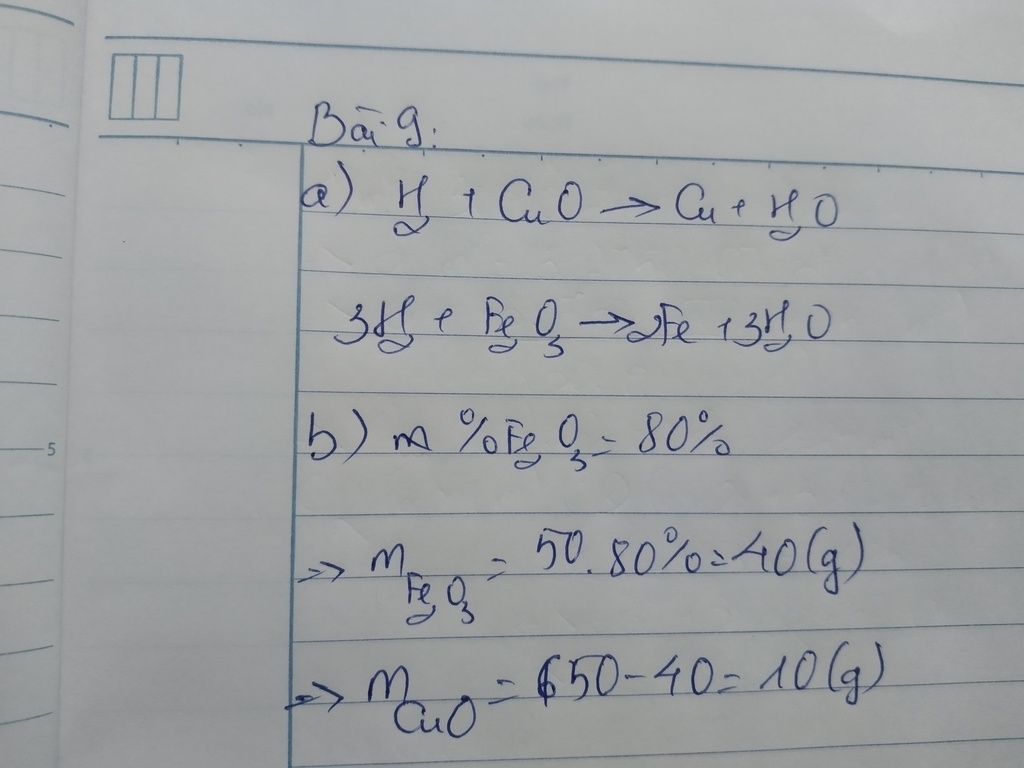 Bài 9:
a) H₂ + CuO → Cu + H₂O
3H₂ + Fe₂O₃ → 2Fe + 3H₂O
b) m % Fe₂O₃ = 80%
5
=> m Fe₂O₃ = 50 . 80% = 40 (g)
=> m CuO = 50 - 40 = 10 (g)